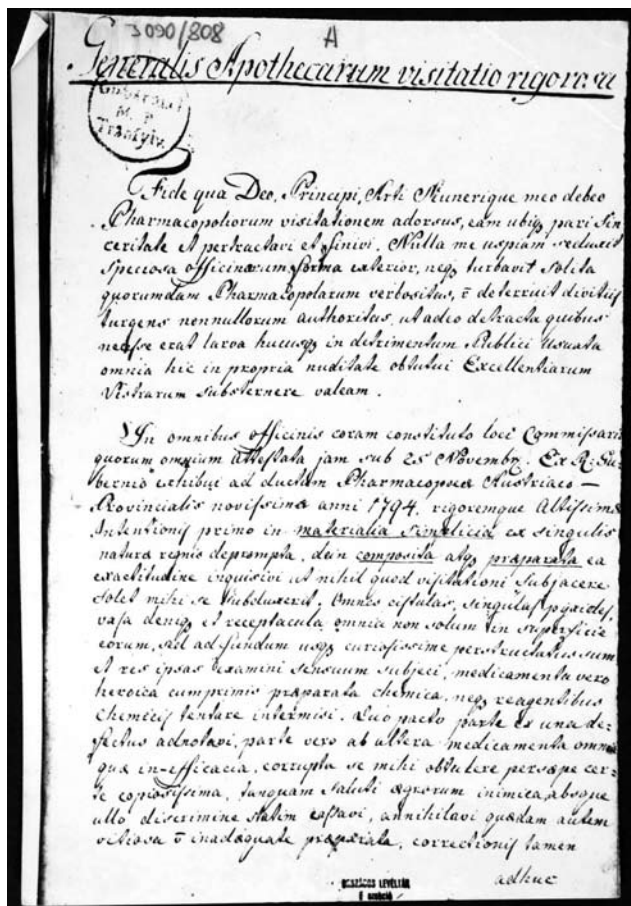 3090/808 A
Generalis Apothecarum visitatio rigorosa
Gubernii
M. P.
Transylv.
Fide qua Deo, Principi, Arti Munerique meo debeo
Pharmacopoliorum visitationem adorsus, eam ubiq pari Sin
ceritate et pertractavi et finivi. Nulla me uspiam seduxit
speciosa officinarum forma exterior, neq turbavit solita
quorumdam Pharmacopolarum verbositas, deterruit divitiis
turgens nonnullorum authoritas, ut adeo detracta quibus
necesse erat larva hucusq in detrimentum Publici usuata
omnia hic in propria nuditate obtutui Excellentiarum
Vestrarum substernere valeam.
In omnibus officinis coram constituto loci Commissario
quorum omnium attestata jam sub 25 Novembr. Ex. R. Gu-
bernio exhibui ad ductum Pharmacopoeae Austriaco-
Provincialis novissimae anni 1794. rigoremque Altissimae
Intentionis primo in materialia simplicia ex singulis
naturae regnis deprompta, dein composita atq praeparata ea
exactitudine inquisivi ut nihil quod visitationi subjacere
solet mihi se subduxerit. Omnes cistulas, singulas pyxides,
vasa deniq et receptacula omnia non solum in superficie
eorum, sed ad fundum usq curiosissime perscrutatus sum
et res ipsas examini sensuum subjeci, medicamenta vero
heroica cumprimis praeparata chemica, neq reagentibus
chemicis tentare intermisi. Quo pacto parte ex una de-
fectus adnotavi, parte vero ab altera medicamenta omnia
quae in-efficacia, corrupta se mihi obtulere persaepe cer-
te copiosissima, tanquam saluti aegrorum inimica, absque
ullo discrimine statim cassavi, annihilavi quaedam autem
vitiosa inadaequate praeparata, correctionis tamen
adhuc
ORSZÁGOS LEVÉLTÁR